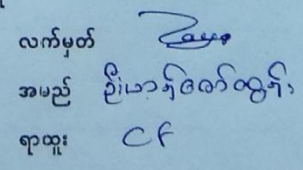 လက်မှတ်
အမည် ဦးဟာန်ဇော်ထွန်း
ရာထူး CF